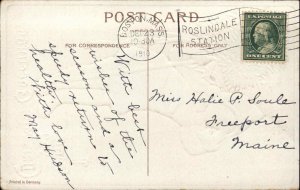 POST CARD
FOR CORRESPONDENCE
FOR ADDRESS ONLY
BOSTON, MASS.
DEC 23
ROSLINDALE
STATION
ONE CENT
With best
wishes of the
season and a
speedy return to
health. With love
May Hudson
Miss Halie P. Soule
Freeport
Maine
Printed in Germany